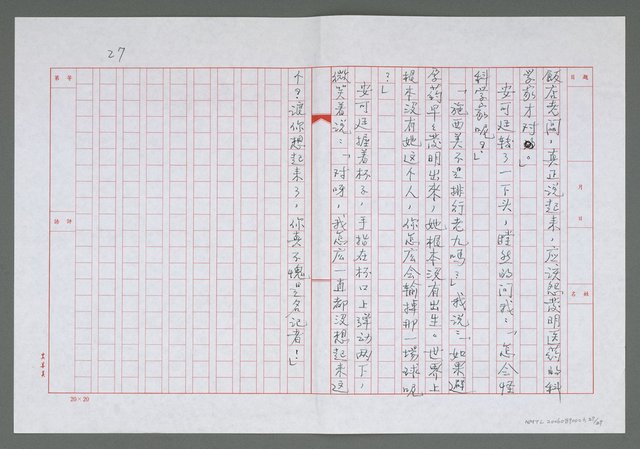 27
飯店老闆，真正说起来，应该怨发明医药的科
学家才对。」
安可廷转了一下头，瞠然的问我：「怎会怪
科学家呢？」
「施西美不是排行老九吗？」我说：「如果避
孕药早早发明出来，她根本没有出生。世界上
根本没有她这个人，你怎么会输掉那一場球呢
？」
安可廷握着杯子，手指在杯口上弹动两下，
微笑着说：「对呀，我怎么一直都没想起来这
个？让你想起来了，你真不愧是名记者！」
題目
月
日
姓名
年
第
評語
20×20